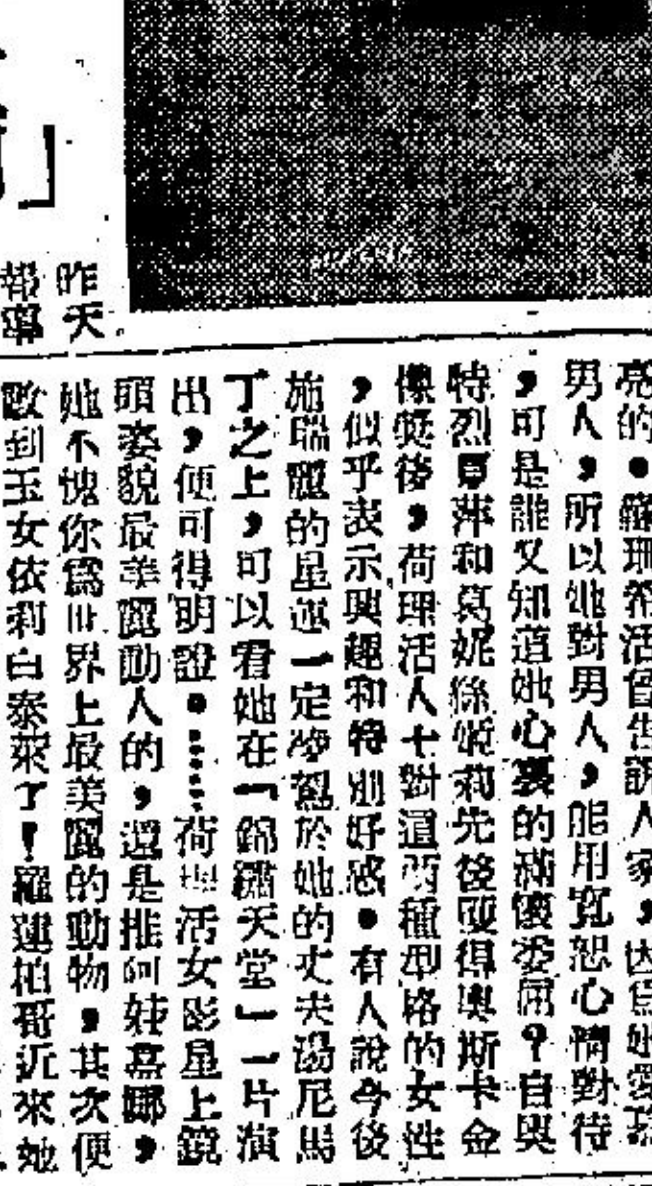 亮的。羅珊希活曾告訴人家，因爲她愛
男人，所以她對男人，能用寬恕心情對待
，可是誰又知道她心裏的滿懷委屈？自與
特烈夏萍和葛妮絲姬莉先後取得奧斯卡金
像獎後，荷理活人士對這兩種型格的女性
，似乎表示興趣和特別好感。有人說今後
施瑞麗的星運一定淩駕於她的丈夫湯尼馬
丁之上，可以看她在「錦繡天堂」一片演
出，便可得明證。……荷理活女影星上鏡
頭姿貌最美麗動人的，還是推阿娃嘉娜，
她不愧你爲世界上最美麗的動物，其次便
數到玉女依莉白泰萊了！羅蓮柏哥近來她
昨天
報
」